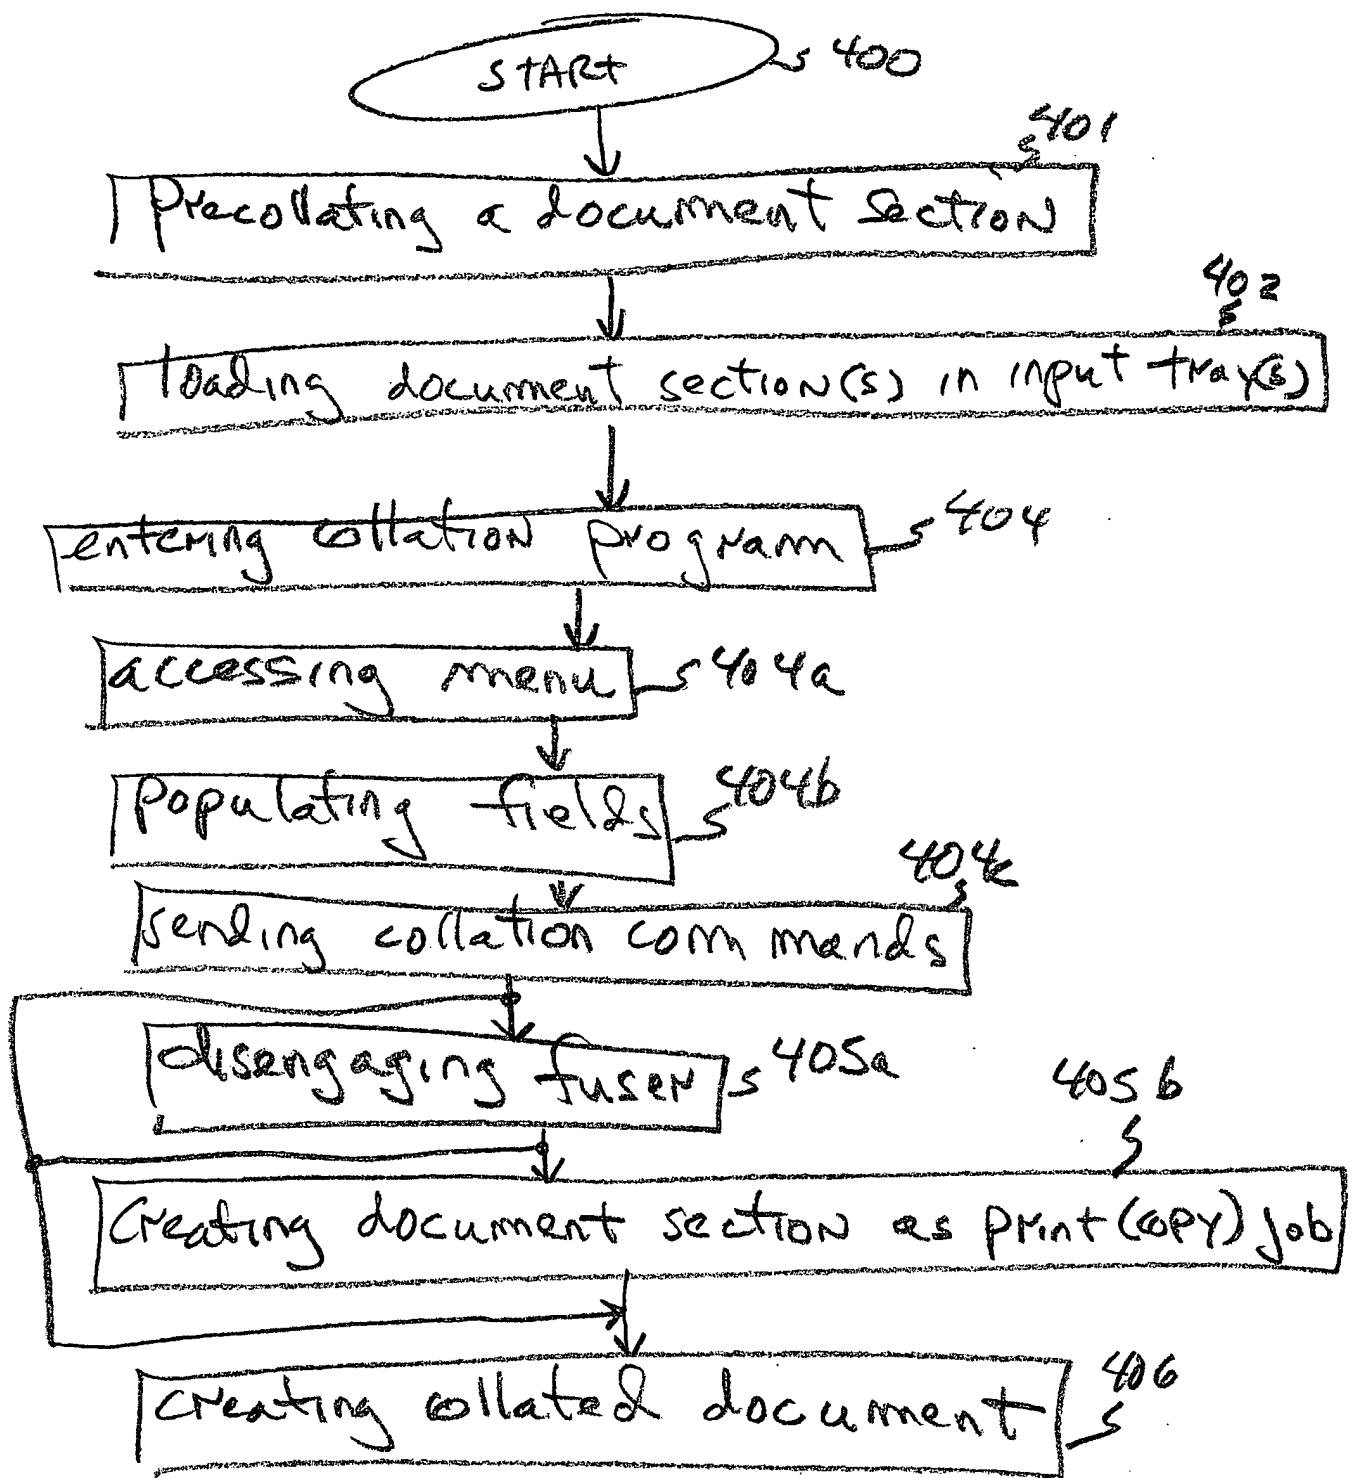 START 400
401
Precollating a document section
402
loading document section(s) in input tray(s)
entering collation program 404
accessing menu 404a
populating fields 404b
404c
sending collation commands
disengaging fuser 405a
405b
Creating document section as print (copy) job
406
creating collated document